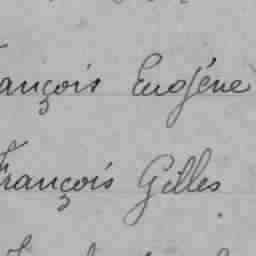 ançois Eugéne
François Gilles